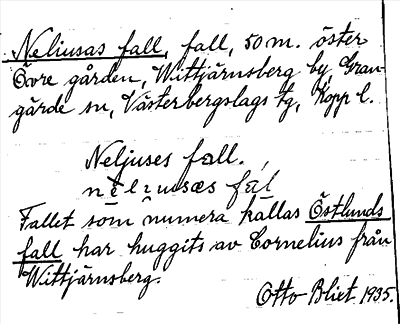 Neliusas fall, fall, 50 m. öster
Övre gården, Wittjärnsberg by, Gran-
gärde sn, Västerbergslags tg, Kopp l.
Neljuses fall.
Fallet som numera kallas Östlunds
fall har huggits av Cornelius från
Wittjärnsberg.
Otto Blixt 1935.